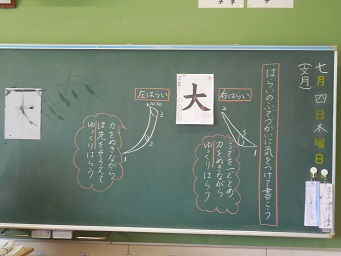 七月四日木曜日
(文月)
はらいのふでづかいに気をつけて書こう
右はらい
大
左はらい
ふでを一度とめ
力をぬきながら
ゆっくりはらう
力をぬきながら
ほ先をそろえて
ゆっくりはらう
大